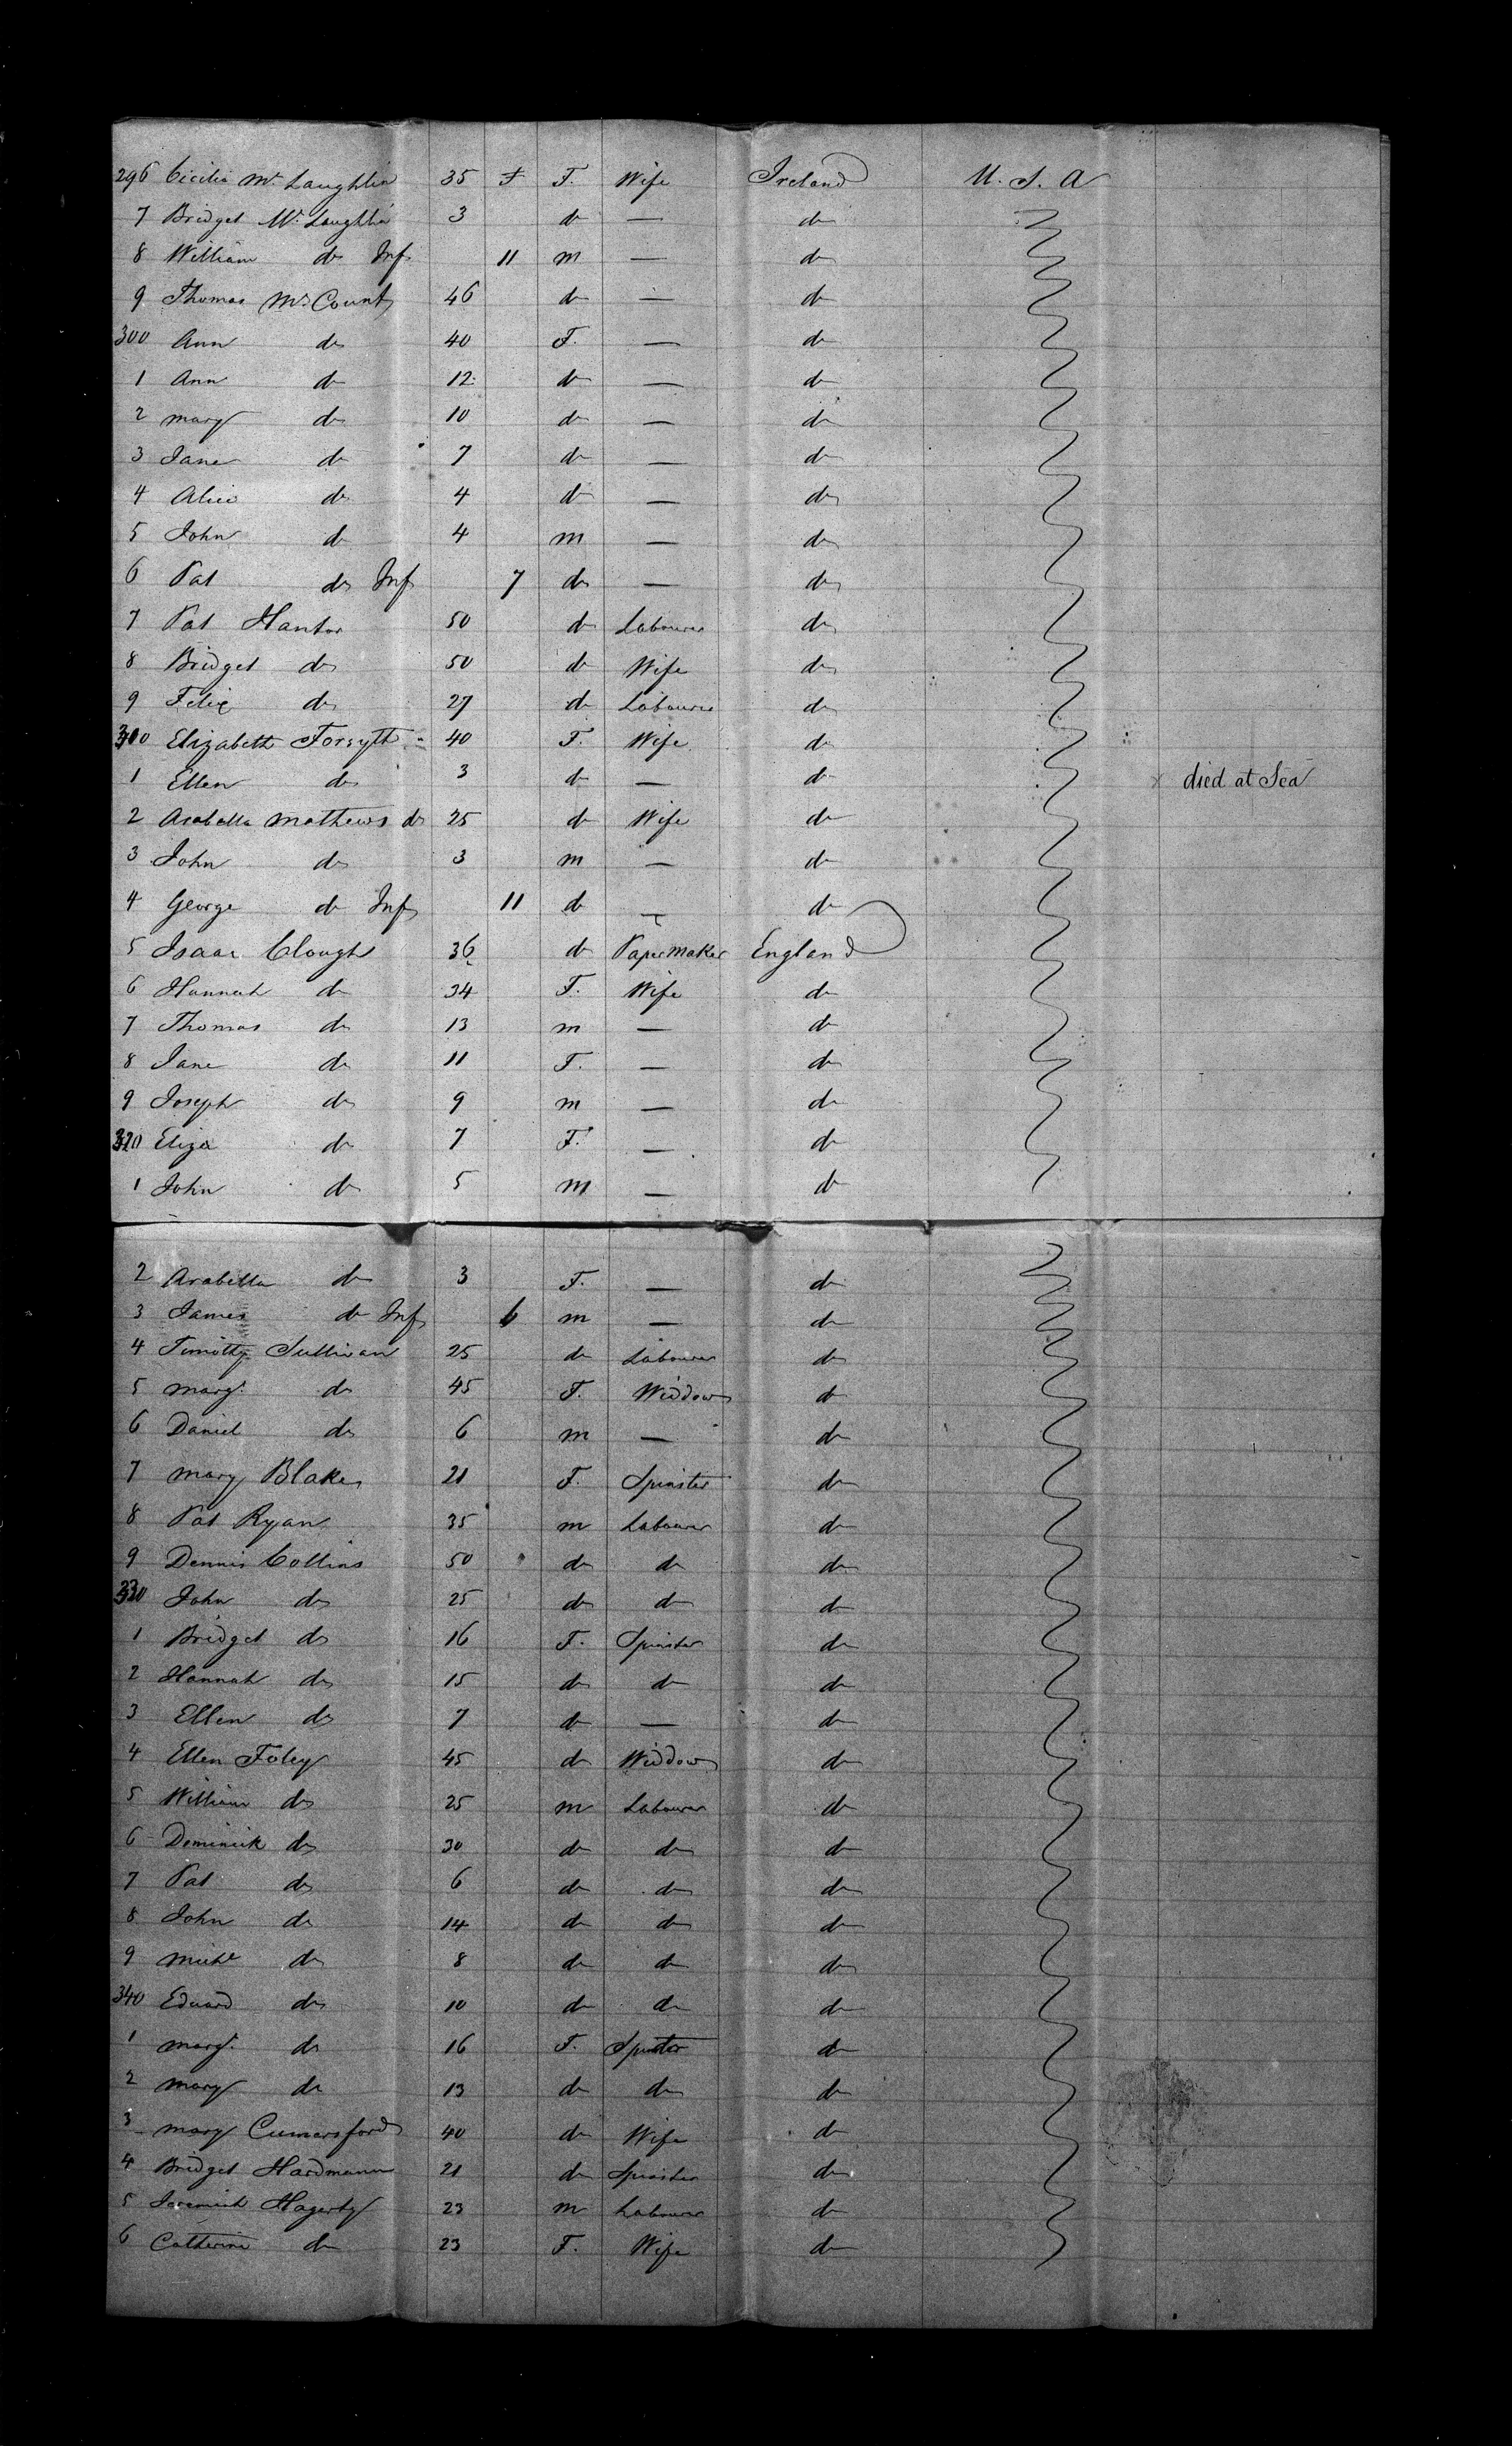 296 Cicilia Mc Laughlin 35 F F. Wife Ireland U. S. A
7 Bridget Mc Laughlin 3 do — do
8 William do Inf 11 m — do
9 Thomas Mc Count 46 do — do
300 Ann do 40 F. — do
1 Ann do 12 do — do
2 mary do 10 do — do
3 Jane do 7 do — do
4 Alice do 4 do — do
5 John do 4 m — do
6 Pat do Inf 7 do — do
7 Pat Hantor 50 do Labourer do
8 Bridget do 50 do Wife do
9 Felix do 27 do Labourer do
310 Elizabeth Forsyth 40 F. Wife do
1 Ellen do 3 do — do died at Sea
2 Arabella Mathews do 25 do Wife do
3 John do 3 m — do
4 George do Inf 11 do — do
5 Isaac Clough 36 do Papermaker England
6 Hannah do 34 F. Wife do
7 Thomas do 13 m — do
8 Jane do 11 F. — do
9 Joseph do 9 m — do
320 Eliza do 7 F. — do
1 John do 5 m — do
2 Arabella do 3 F. — do
3 James do Inf 6 m — do
4 Timothy Sullivan 25 do Labourer do
5 margt do 45 F. Widdow do
6 Daniel do 6 m — do
7 mary Blake 21 F. Spinster do
8 Pat Ryan 35 m Labourer do
9 Dennis Collins 50 do do do
330 John do 25 do do do
1 Bridget do 16 F. Spinster do
2 Hannah do 15 do do do
3 Ellen do 7 do — do
4 Ellen Foley 45 do Widdow do
5 William do 25 m Labourer do
6 Dominick do 30 do do do
7 Pat do 6 do do do
8 John do 14 do do do
9 Michl do 8 do do do
340 Edward do 10 do do do
1 margt do 16 F. Spinster do
2 mary do 13 do do do
3 mary Cumarsford 40 do Wife do
4 Bridget Hardmann 21 do Spinster do
5 Jeremiah Hagerty 23 m Labourer do
6 Catherine do 23 F. Wife do